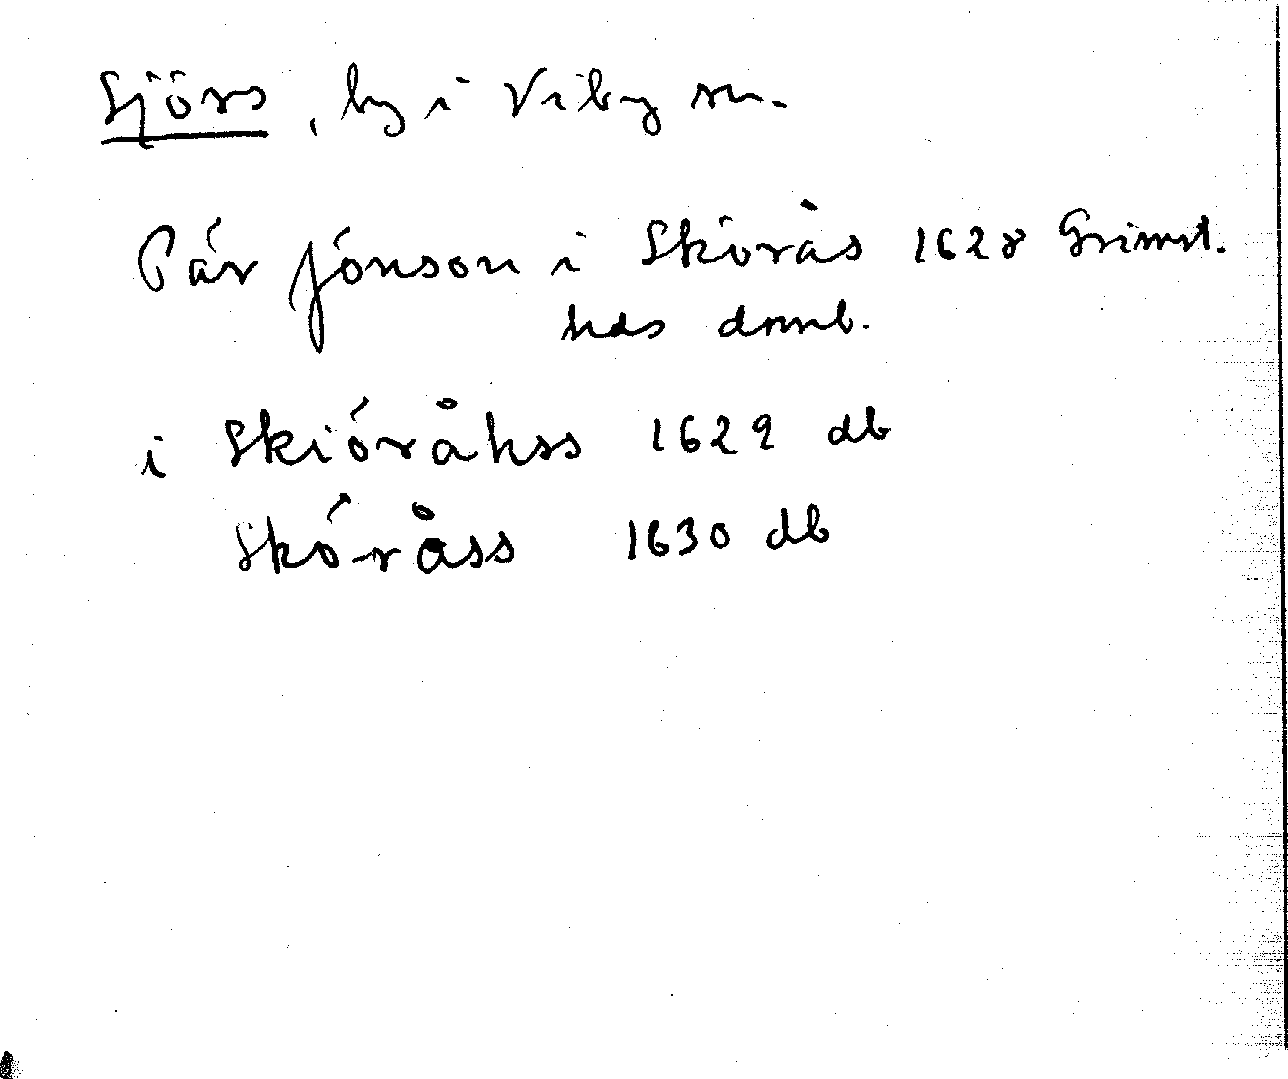 Sjörs, by i Viby sn.
Pár Jónson i Skórås 1628 Grimst.
hds domb.
i Skióråhss 1629 db
Skóråss 1630 db